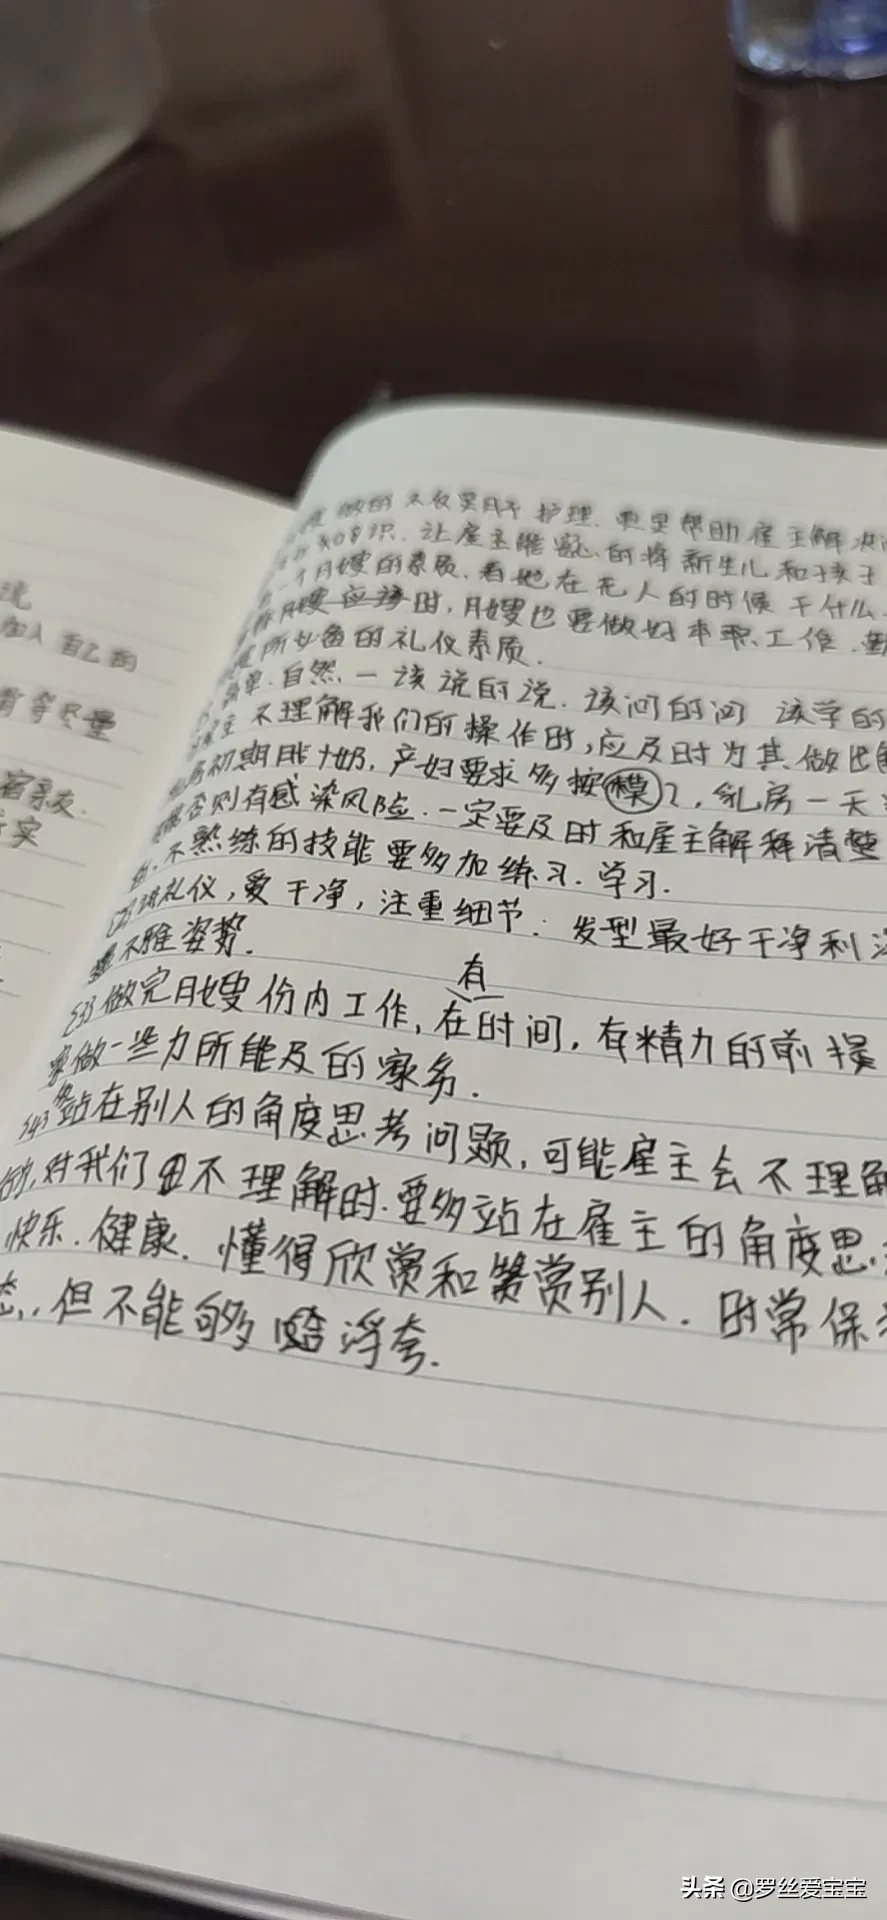 流
加入自己的
背等尽量
亲友.
实
做的不仅是月子护理.更是帮助雇主解决
知识.让雇主能 的将新生儿和孩子
一个月嫂的素质.看她在无人的时候干什么.
月嫂应该时,月嫂也要做好本职工作.
所必备的礼仪素质.
简单.自然.一该说的说.该问的问 该学的
雇主不理解我们的操作时,应及时为其做出
初期 奶.产妇要求多按(模)2,乳房一天
否则有感染风险.一定要及时和雇主解释清楚
不熟练的技能要多加练习.学习.
{2}讲礼仪,爱干净,注重细节.发型最好干净利
不雅姿势.
有
{3}做完月嫂份内工作,在时间,有精力的前提
要做一些力所能及的家务.
{4}站在别人的角度思考问题,可能雇主会不理解
对我们不理解时.要多站在雇主的角度思
快乐.健康.懂得欣赏和赞赏别人.时常保
态,.但不能够 浮夸.
头条 @罗丝爱宝宝